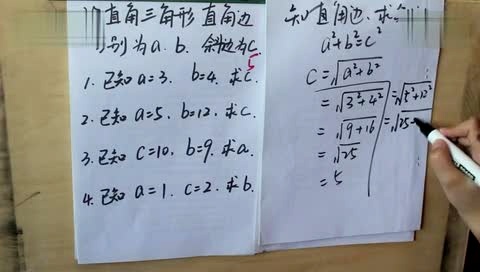 直角三角形 直角边
别为a.b. 斜边为c.
5
1. 已知 a=3. b=4. 求c.
2. 已知 a=5. b=12. 求c.
3. 已知 c=10. b=9. 求a.
4. 已知 a=1. c=2. 求b.
知直角边.求
a²+b²=c²
c=√(a²+b²)
=√(3²+4²)
=√(9+16)
=√25
=5
=√(5²+12²)
=√25